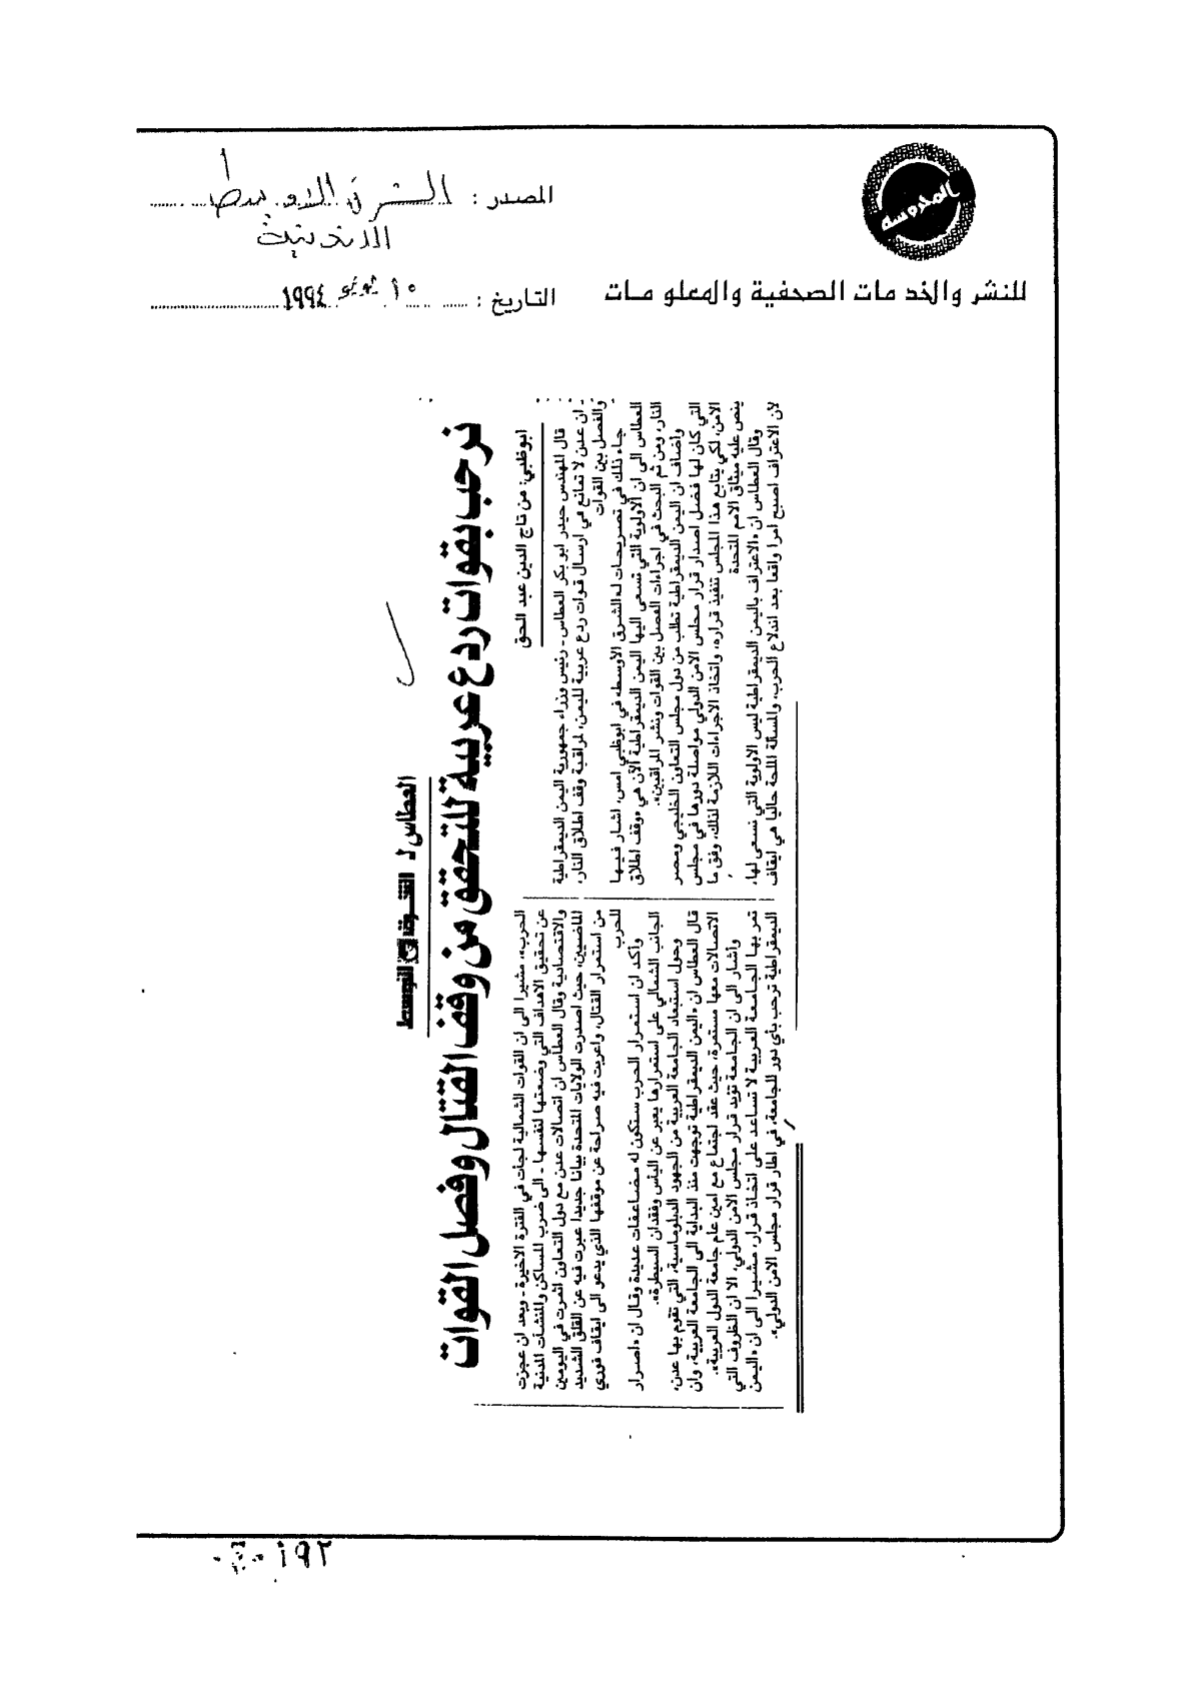 المحروسة
للنشر والخدمات الصحفية والمعلومات
المصدر : الشرق الاوسط
اللندنية
التاريخ : ١٠ يونيو ١٩٩٤
العطاس لـ الشرق الأوسط
نرحب بقوات ردع عربية للتحقق من وقف القتال وفصل القوات
ابوظبي: من تاج الدين عبد الحق
قال المهندس حيدر ابو بكر العطاس - رئيس وزراء جمهورية اليمن الديمقراطية
- ان عدن لا تمانع في ارسال قوات ردع عربية لليمن، لمراقبة وقف اطلاق النار،
والفصل بين القوات
جاء ذلك في تصريحات لـ«الشرق الأوسط» في ابوظبي امس، اشار فيها
العطاس الى ان الاولوية التي تسعى اليها اليمن الديمقراطية الآن هي «وقف اطلاق
النار، ومن ثم البحث في اجراءات الفصل بين القوات ونشر المراقبين».
وأضاف ان اليمن الديمقراطية تطلب من دول مجلس التعاون الخليجي ومصر
التي كان لها فضل اصدار قرار مجلس الامن الدولي مواصلة دورها في مجلس
الامن، لكي يتابع هذا المجلس تنفيذ قراره، واتخاذ الاجراءات اللازمة لذلك، وفق ما
ينص عليه ميثاق الامم المتحدة
وقال العطاس ان «الاعتراف باليمن الديمقراطية ليس الاولوية التي نسعى لها،
لان الاعتراف اصبح امرا واقعا بعد اندلاع الحرب، والمسألة الملحة حاليا هي ايقاف
الحرب»، مشيرا الى ان القوات الشمالية لجأت في الفترة الاخيرة - وبعد ان عجزت
عن تحقيق الاهداف التي وضعتها لنفسها - الى ضرب المساكن والمنشآت المدنية
والاقتصادية وقال العطاس ان اتصالات عدن مع دول التعاون اثمرت في اليومين
الماضيين، حيث اصدرت الولايات المتحدة بيانا جديدا عبرت فيه عن القلق الشديد
من استمرار القتال، واعربت فيه صراحة عن موقفها الذي يدعو الى ايقاف فوري
للحرب
وأكد ان استمرار الحرب ستكون له مضاعفات عديدة وقال ان «اصرار
الجانب الشمالي على استمرارها يعبر عن اليأس وفقدان السيطرة».
وحول استبعاد الجامعة العربية من الجهود الدبلوماسية، التي تقوم بها عدن،
قال العطاس ان «اليمن الديمقراطية توجهت منذ البداية الى الجامعة العربية، وان
الاتصالات معها مستمرة، حيث عقد اجتماع مع امين عام جامعة الدول العربية».
وأشار الى ان الجامعة تؤيد قرار مجلس الامن الدولي، الا ان الظروف التي
تمر بها الجامعة العربية لا تساعد على اتخاذ قرار، مشيرا الى ان «اليمن
الديمقراطية ترحب بأي دور للجامعة، في اطار قرار مجلس الامن الدولي».
١٩٢